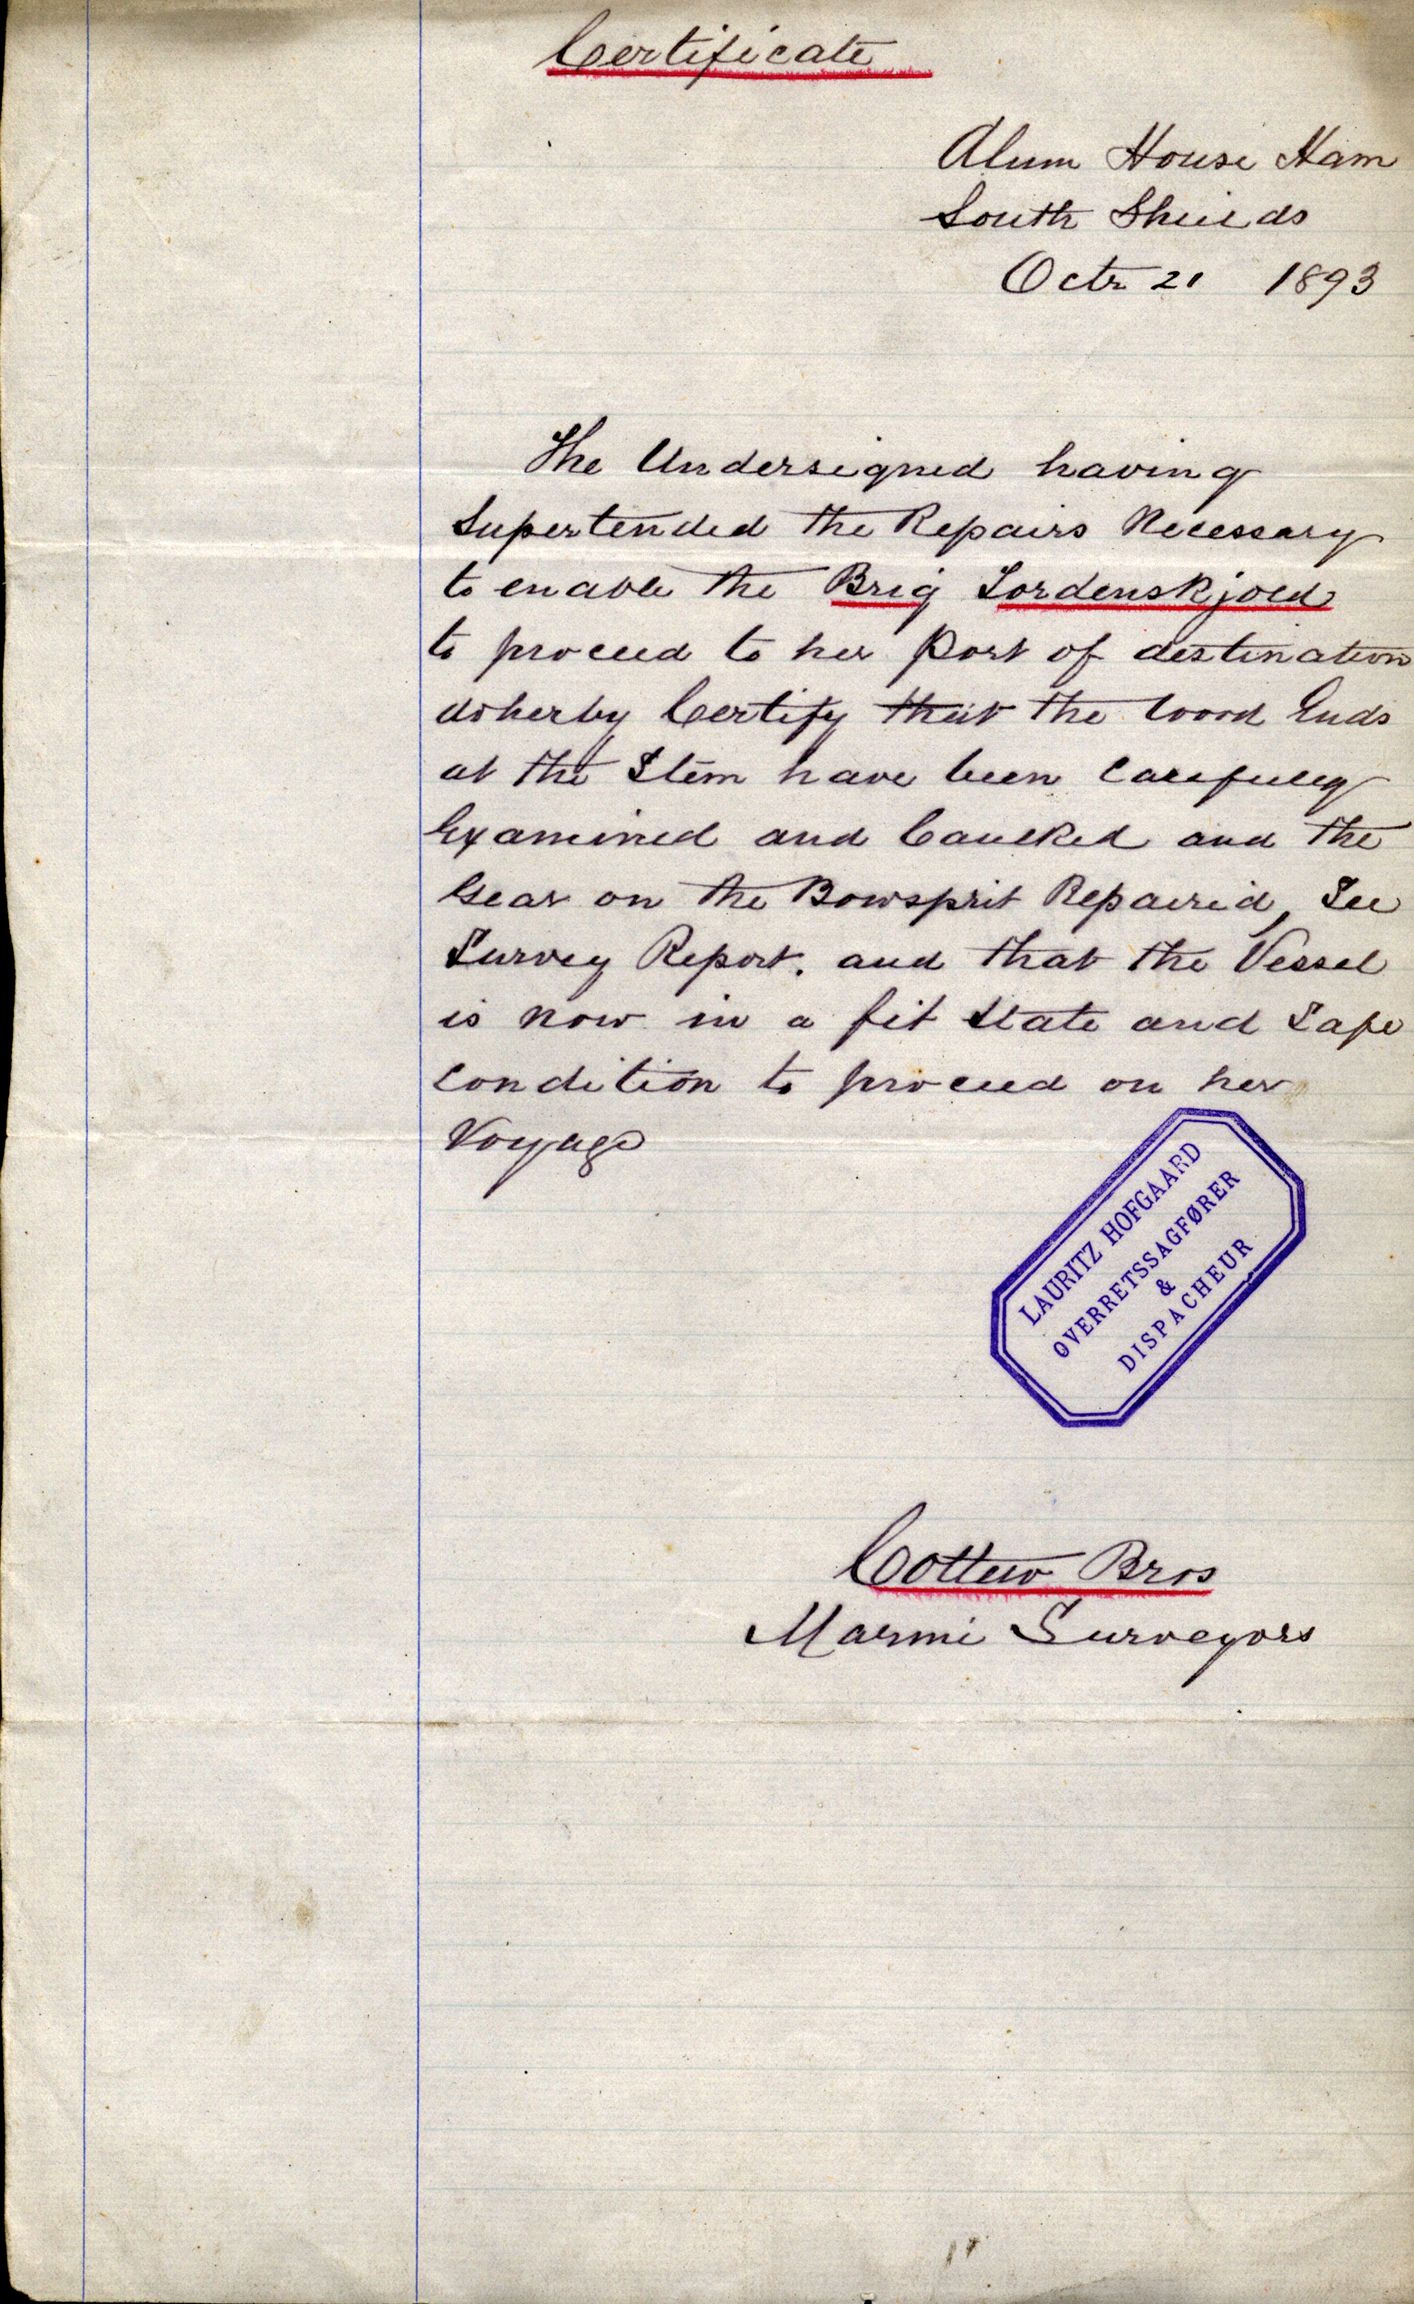 Certificate
Alum House Ham
South Shields
Octr 21 1893
The Undersigned having
Supertended the Repairs Necessary
to enable the Brig Tordenskjold
to proceed to her Port of destination
do herby Certify that the wood Ends
at the Stem have been Carefully
Examined and Caulked and the
Gear on the Bowsprit Repaired, See
Survey Report. and that the Vessel
is now in a fit State and Safe
Condition to proceed on her
Voyage
LAURITZ HOFGAARD
OVERRETSSAGFØRER
&
DISPACHEUR
Bros
Marine Surveyors